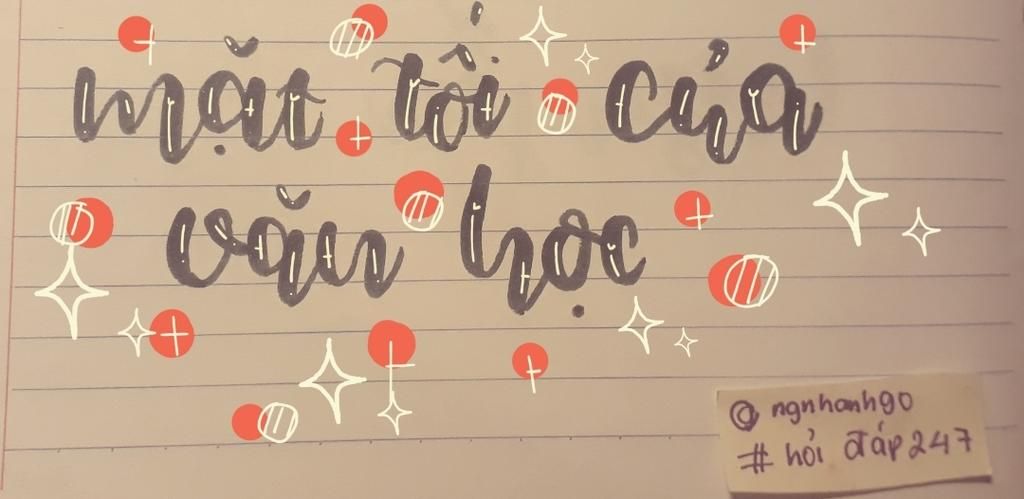 mặt tối của
văn học
@ ngnhanh90
# hỏi đáp 247